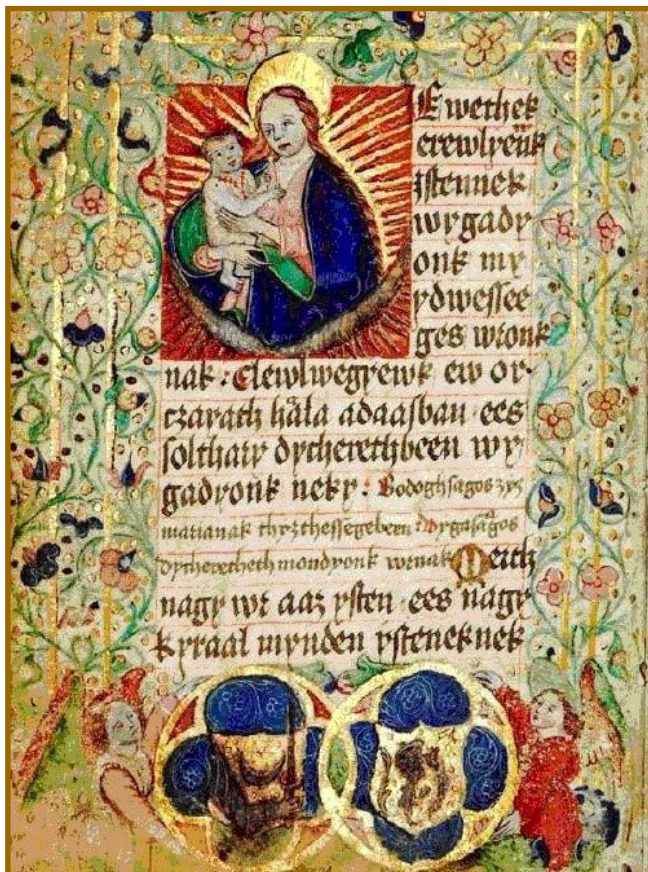 Ewethek
erewlyeük
istennek
wygady
onk my
ydwessee
ges wronk
nak : Elewlwegyewk ew or-
czarath hála adaasban ees
soltharr dycherethbeen wy-
gadyonk neky : Bodoghsagos zyz
marianak thyzthessegebeen : Vygasagos
dycherethech mondyonk wrnak Merth
nagy wr aaz ysten ees nagy
kyraal mynden ysteneknek